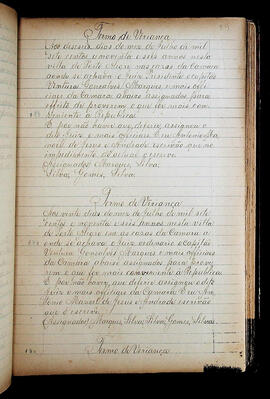 Termo de Veriança
Aos deseseis dias do mez de Julho de mil
sete centos e noventa e seis annos nesta
villa de Bello Moxo nas casas da Camara
aonde se achava o Juiz Presidente o capitão
Ventura Gonsalves Marques e mais offi
ciaes da Camara abaixo assignados para
effeito de proverem o que for mais con
viniente á Republica.
E por não haver que deferir assignou o
dito Juiz e mais officiaes. Eu Antonio Ma
noel de Jesus e Andrade escrivão que no
impedimento do actual o escrevi.
Assignados Marques, Silva,
Silva, Gomes, Silva.
Termo de Veriança
Aos vinte dias do mez de Julho de mil sete
centos e noventa e seis annos nesta villa
de em as casas da Camara a
onde se achava o Juiz ordinario o Capitão
Ventura Gonsalves Marques e mais officiaes
da Camara abaixo assignados para prove
rem o que for mais conveniente a Republica
E por não haver que deferir assignou o dito
Juiz e mais officiaes da Camara. Eu An
tonio Manoel de Jesus e Andrade escrivão
que o escrevi.
(Assignados) Marques, Silva, Silva, Gomes, Silva.
Termo de Veriança